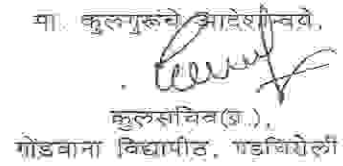 मा. कुलगुरूंचे आदेशान्वये,
कुलसचिव(प्र.),
गोंडवाना विद्यापीठ, गडचिरोली